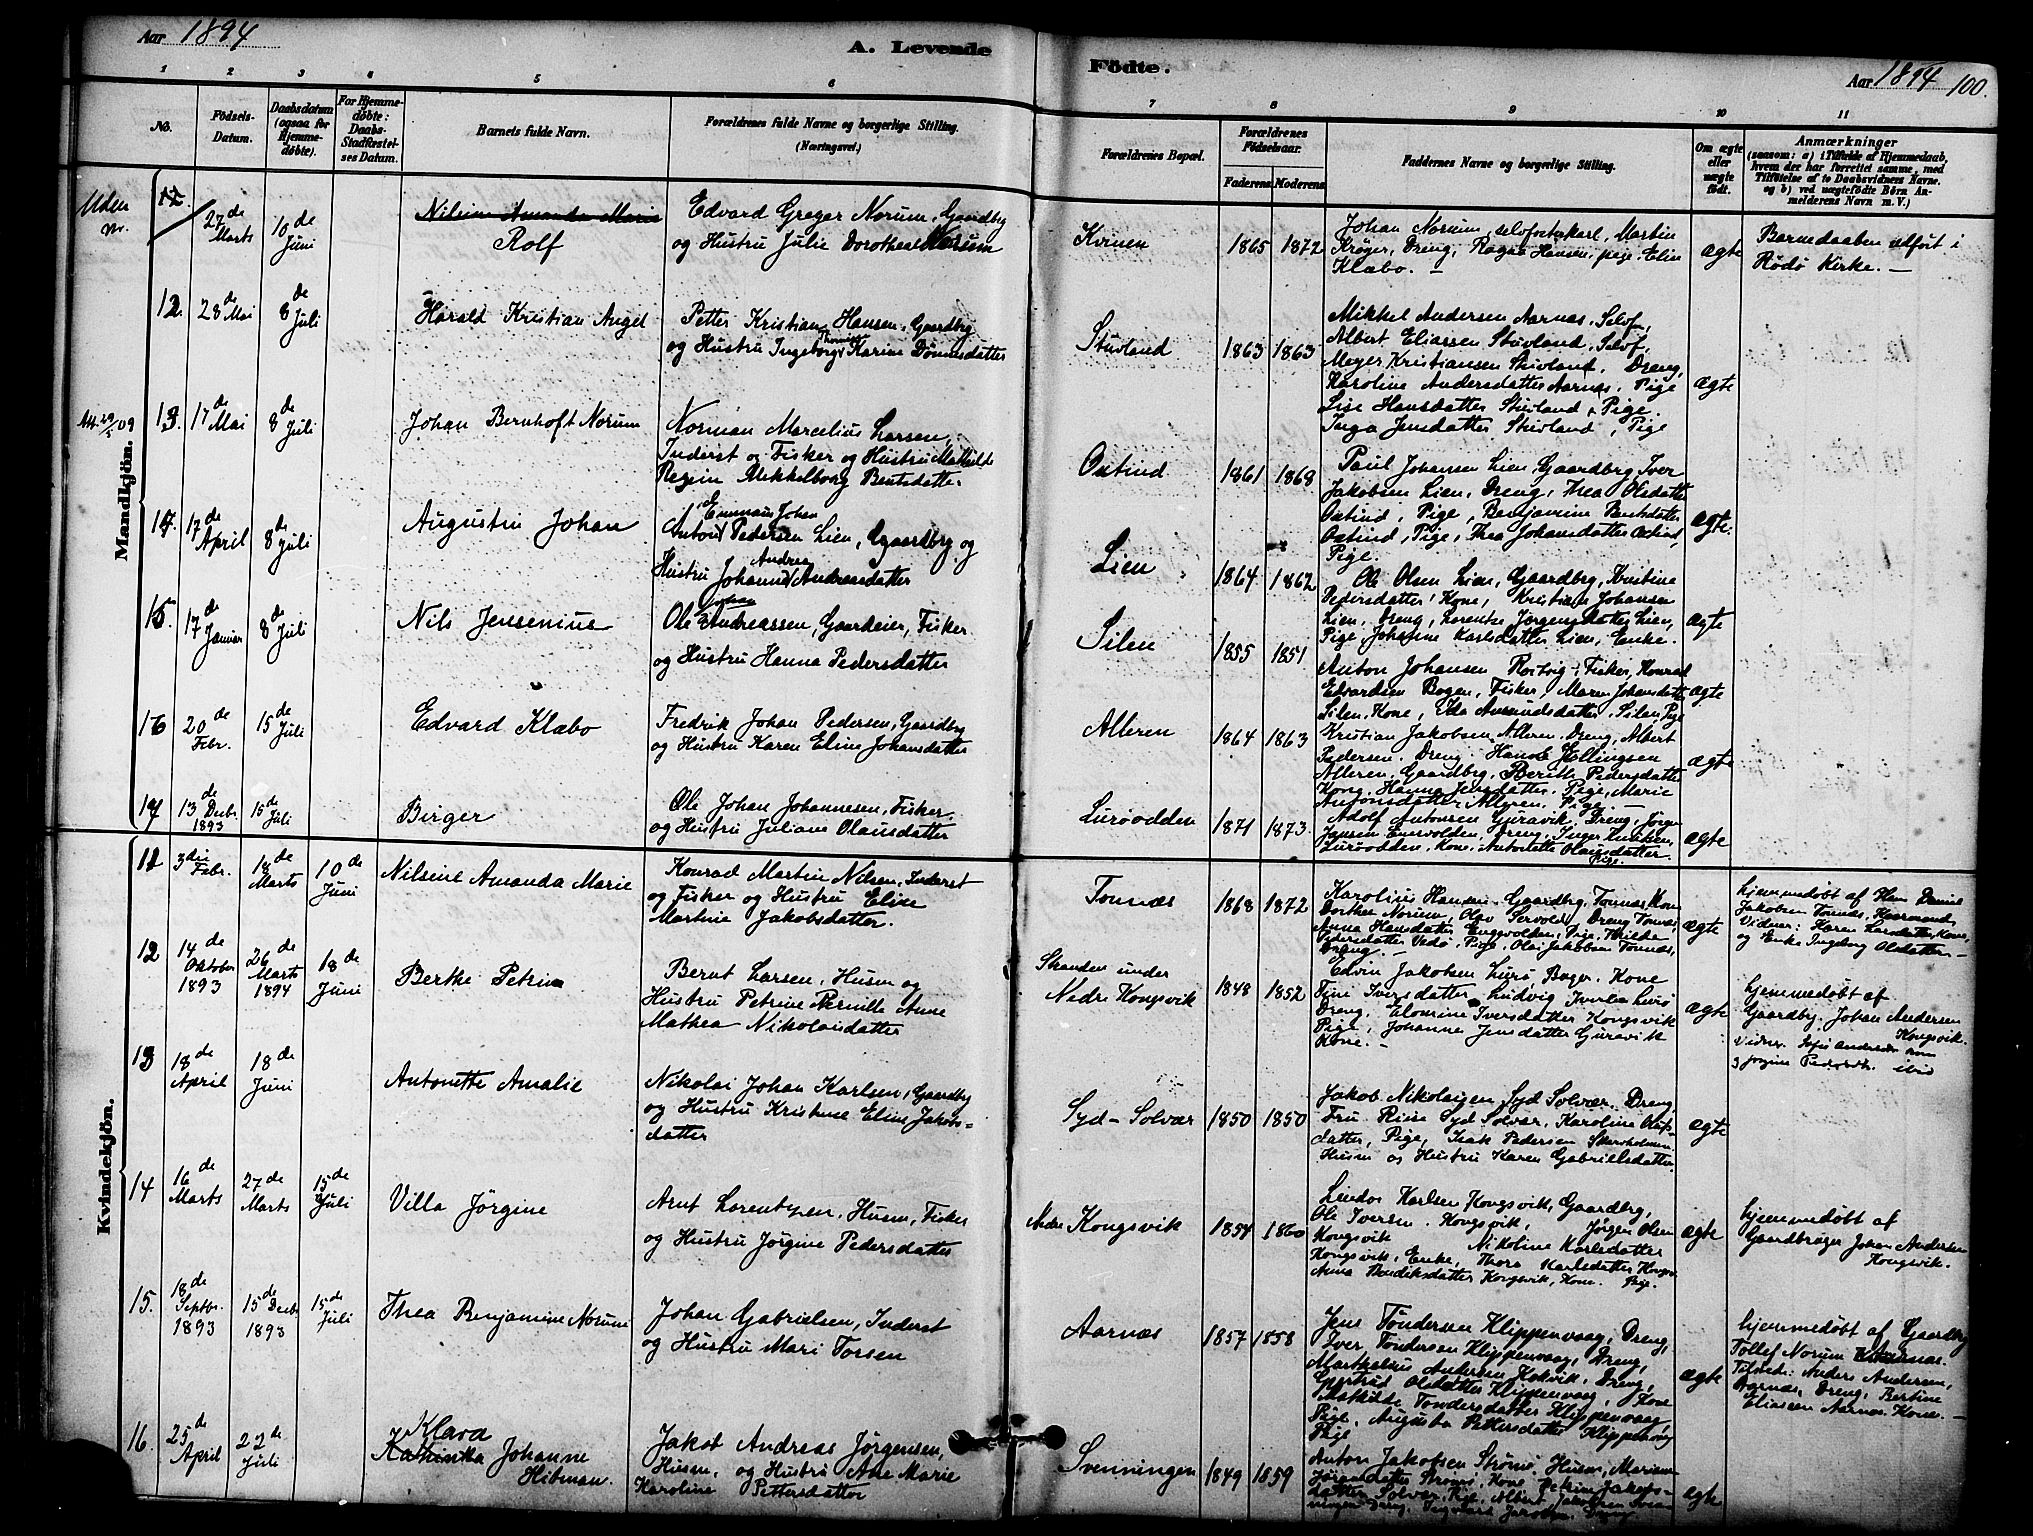 Aar 1894
A. Levende
Födte.
Aar 1894 100.
1 2 3 4 5 6 7 8 9 10 11
No.
Födsels-Datum.
Daabsdatum (ogsaa for Hjemmedøbte).
For Hjemmedøbte: Daabs-Stadfæstelses Datum.
Barnets fulde Navn.
Forældrenes fulde Navne og borgerlige Stilling. (Næringsvei.)
Forældrenes Bopæl.
Forældrenes Fødselsaar.
Faderens. Moderens.
Faddernes Navne og borgerlige Stilling.
Om ægte eller uægte født.
Anmærkninger
(saasom: a) i Tilfælde af Hjemmedaab,
hvem der har forrettet samme, med
Tilføielse af to Daabsvidners Navne.
og b) ved uægtefödte Børn Anmelderens Navn m. V.)
Mandkjön.
Uden Nr.
27de Marts
10de Juni
Nilsine Amanda Marie
Rolf
Edvard Greger Norum, Gaardbrg
og Hustru Julie Dorothea Norum
Kvinen
1865 1872
Johan Norum, selofostukarl, Martin
Krøger, Dreng, Ragna Hansen, pige, Elin
Klæbo. —
ægte
Barnedaaben udført i
Rödö Kirke. —
12. 28de Mai
8de Juli
Harald Kristian Angel
Petter Kristian Hansen, Gaardbg
og Hustru Ingeborg Karine Dönnesdatter
Stuvland
1863 1863
Mikkel Andersen Aarnæs, Selvf,
Albert Eliassen Stuvland, Selvf,
Meyer Kristiansen Stuvland, Dreng,
Karoline Andersdatter Aarnæs, Pige
Lise Hansdatter Stuvland, Pige.
Inga Jensdatter Stuvland, Pige
ægte
Att. 29/5 09
13. 17de Mai
8de Juli
Johan Bernhoft Norum
Norman Marcelius Larsen,
Inderst og Fisker og Hustru Mathilde
Regine Mekkelborg Bentsdatter
Oxtind
1861 1868
Paul Johansen Lien Gaardbrg Iver
Jakobsen Lien, Dreng, Thea Olsdatter
Oxtind, Pige, Benjamine Bentsdatter
Oxtind, Pige, Thea Johansdatter Oxtind,
Pige.
ægte.
14. 17de April
8de Juli
Augustin Johan
Emmaus Johan
Anton Pedersen Lien, Gaardbrg og
Andrea
Hustru Johanna Andreasdatter
Lien
1864 1862
Ole Olsen Lien, Gaardbrg, Kristine
Pedersdatter Kone, Kristian Johansen
Lien, Dreng, Lorentze Jörgensdatter Lien,
Pige Johanne Karlsdatter Lien, Enke.
ægte
15. 17de Januar
8de Juli
Nils Jensenius
Johan
Ole Andreassen, Gaardeier, Fisker
og Hustru Hanna Pedersdatter
Silen
1855 1851
Anton Johansen Rostvig, Fisker, Konrad
Edvardsen Bogen, Fisker, Maren Johansdatter
Silen, Kone, Ida Amundsdatter, Silen, Pige
ægte
16 20de Febr.
15de Juli
Edvard Klæbo
Fredrik Johan Pedersen, Gaardbg
og Hustru Karen Eline Johansdatter
Alleren
1864 1863
Kristian Jakobsen Alleren, Dreng, Albert
Pedersen, Dreng, Hans Ellingsen
Alleren, Gaardbrg, Berith Pedersdatter
Kone, Hanna Jensdatter, Pige, Marie
Antonsdatter Alleren, Pige. —
ægte
17 13de Decbr. 1893
15de Juli
Birger
Ole Johan Johannesen, Fisker,
og Hustru Juliane Olausdatter
Luröodden
1871 1873
Adolf Antonsen Guravik, Dreng, Jörgen
Jansen Enevolden, Dreng, Inger
Luröodden, Kone, Antonette Olausdatter
Pige.
ægte
Kvindekjön.
11 3die Febr.
18de Marts
10de Juni
Nilsine Amanda Marie
Konrad Martin Nilsen, Inderst
og Fisker og Hustru Elise
Martine Jakobsdatter.
Tonnæs
1868 1872
Karolius Hansen, Gaardbrg, Tonnæs, Kone
Dorthea Norum, Olav Servold, Dreng Tonnæs,
Anna Hansdatter Engevolden, Pige, Hilda
Pedersdatter Vedö, Pige, Olai Jakobsen Tonnæs,
Dreng. —
ægte
hjemmedöbt af Hr. Daniel
Jakobsen Tonnæs,
Vidner: Karen Larsdatter, Kone,
og Enke Ingeborg Olsdatter. —
12 14de Oktober 1893
26de Marts 1894
18de Juni
Berthe Petrine
Bernt Larsen, Husm og
Hustru Petrine Pernille Anne
Mathea Nikolaisdatter
Stranden under
Nedre Kongsvik
1848 1852
Edvin Jakobsen Lurö Bager. Kone
Fini Iversdatter, Ludvig Iversen Lurö
Dreng, Elourine Iversdatter Kongsvik
Pige, Johanne Jensdatter Guravik
Kone. —
ægte
hjemmedöbt af
Gaardbg. Johan Andersen
Kongsvik.
Vidner
13 18de April
18de Juni
Antonette Amalie
Nikolai Johan Karlsen, Gaardbg
og Hustru Kristine Eline Jakobs-
datter
Syd-Solvær
1850 1850
Jakob Nikolaisen Syd Solvær, Dreng,
Fru Riise Syd Solvær, Karoline Olufs-
datter, Pige, Isak Pedersen Skarholmen
Husm og Hustru Karen Gabrielsdatter.
ægte
14 16de Marts
27de Marts
15de Juli
Villa Jörgine
Arnt Lorentzen, Husm, Fisker
og Hustru Jörgine Pedersdatter
Nedre Kongsvik
1854 1860
Lindor Karlsen Kongsvik, Gaardbrg,
Ole Iversen, Kongsvik, Jörgen Olsen
Kongsvik Nikoline Karlsdatter
Kongsvik, Enke, Thora Karlsdatter Kongsv.
Anna Bendiksdatter Kongsvik, Kone. Pige.
ægte
hjemmedöbt af
Gaardbruger Johan Andersen
Kongsvik.
15. 18de Septbr. 1893
15de Decbr 1893
15de Juli
Thea Benjamine Norum
Johan Gabrielsen, Inderst
og Hustru Mari Torsen
Aarnæs
1857 1858
Jens Töndersen Klippenvaag, Dreng,
Iver Töndersen Klippenvaag, Dreng,
Marthelius Andersen Kokvik, Dreng,
Gjertrud Olsdatter Klippenvaag, Kone
Mathilde Töndersdatter Klippenvaag
Pige, Augusta Pettersdatter Klippenvaag
Pige
ægte
hjemmedöbt af Gaardbrg
Tollef Norum Aarnæs.
Tilstede: Anders Andersen,
Aarnæs, Dreng, Bertine
Eliassen Aarnæs Kone. —
16. 25de April
22de Juli
Klara
Kathinka Johanne
Hitman.
Jakob Andreas Jörgensen,
Husm, og Hustru Ane Marie
Karoline Pettersdatter
Svenningen
1849 1859
Anton Jakobsen Strömö, Husm, Mariane
Jörgendatter Strömö, Kone, Petrine Jakobs-
datter Solvær, Pige, Albert Jakobsen Sven-
ningen Dreng,
ægte